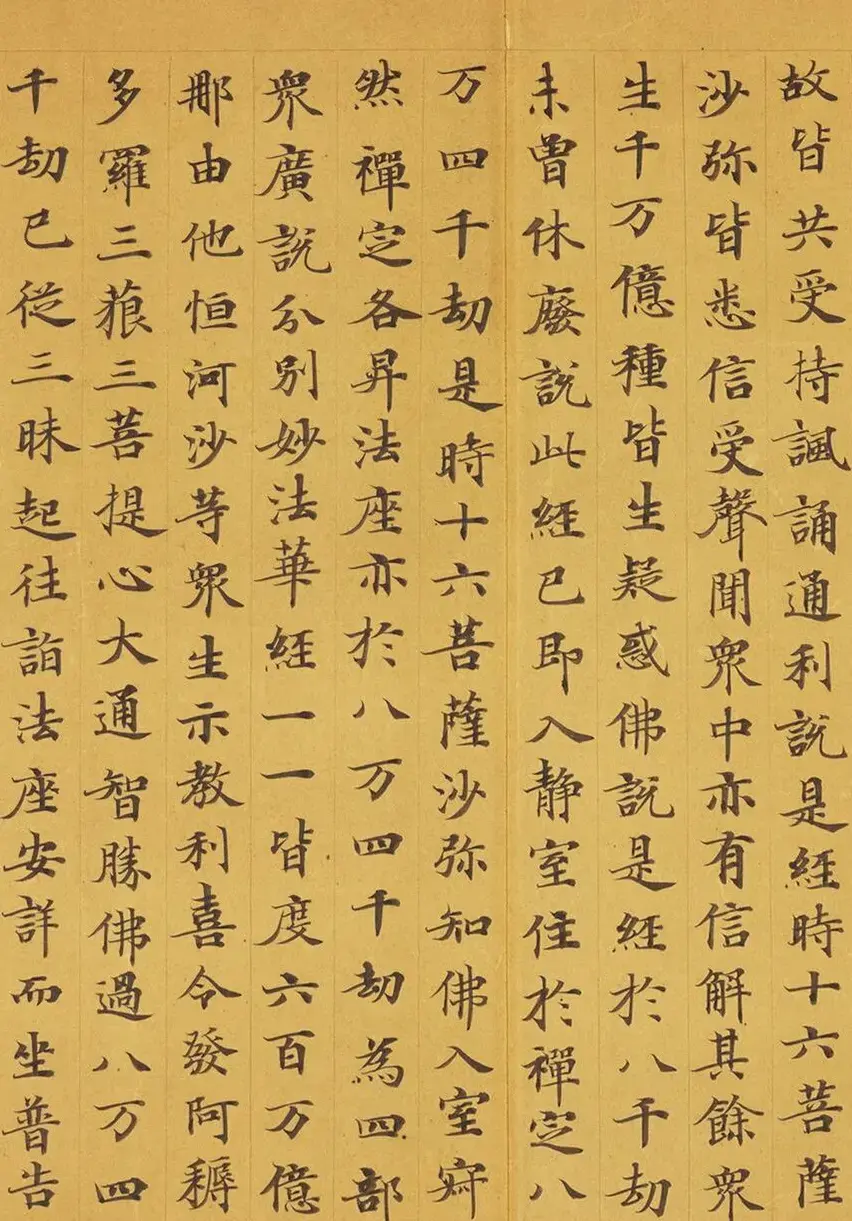 故皆共受持諷誦通利說是經時十六菩薩
沙弥皆悉信受聲聞眾中亦有信解其餘眾
生千万億種皆生疑惑佛說是經於八千劫
未曾休廢說此經已即入静室住於禪定八
万四千劫是時十六菩薩沙弥知佛入室寂
然禪定各昇法座亦於八万四千劫為四部
眾廣說分別妙法華經一一皆度六百万億
那由他恒河沙等眾生示教利喜令發阿耨
多羅三藐三菩提心大通智勝佛過八万四
千劫已從三昧起往詣法座安詳而坐普告